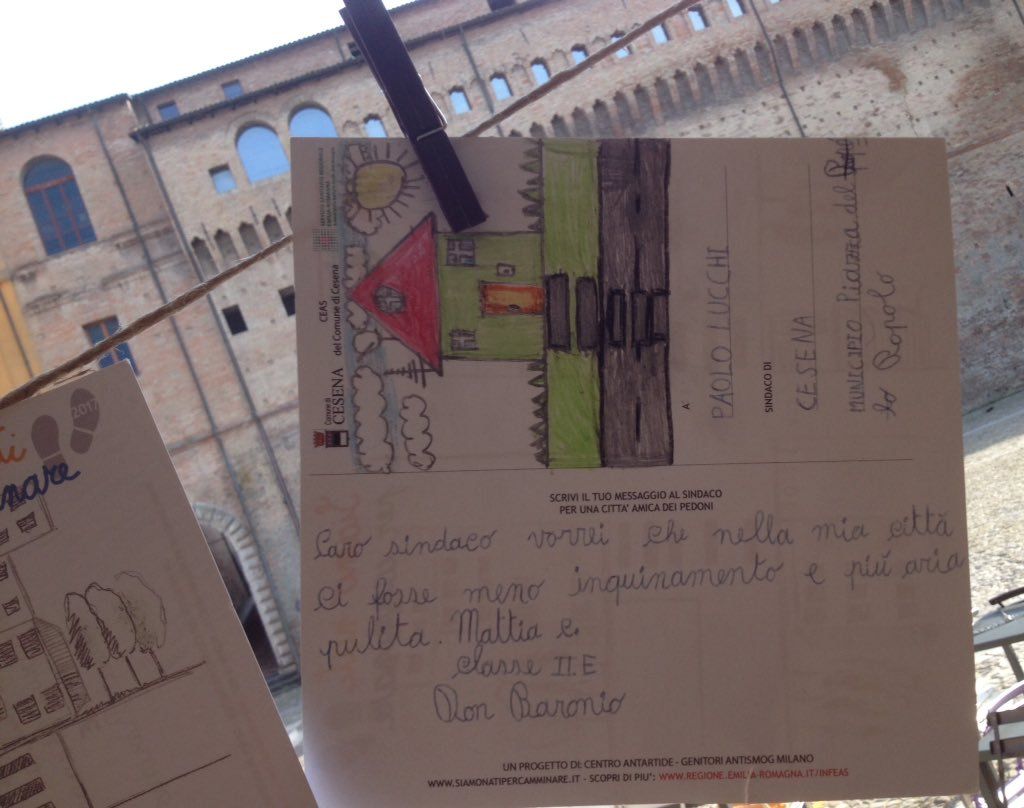 2017
nare
Comune di
CESENA
CEAS
del Comune di Cesena
A
PAOLO LUCCHI
SINDACO DI
CESENA
MUNICIPIO Piazza del
lo Popolo
SCRIVI IL TUO MESSAGGIO AL SINDACO
PER UNA CITTA' AMICA DEI PEDONI
Caro sindaco vorrei che nella mia città
ci fosse meno inquinamento e più aria
pulita. Mattia C.
classe II.E
Don Baronio
UN PROGETTO DI: CENTRO ANTARTIDE - GENITORI ANTISMOG MILANO
WWW.SIAMONATIPERCAMMINARE.IT - SCOPRI DI PIU': WWW.REGIONE.EMILIA-ROMAGNA.IT/INFEAS